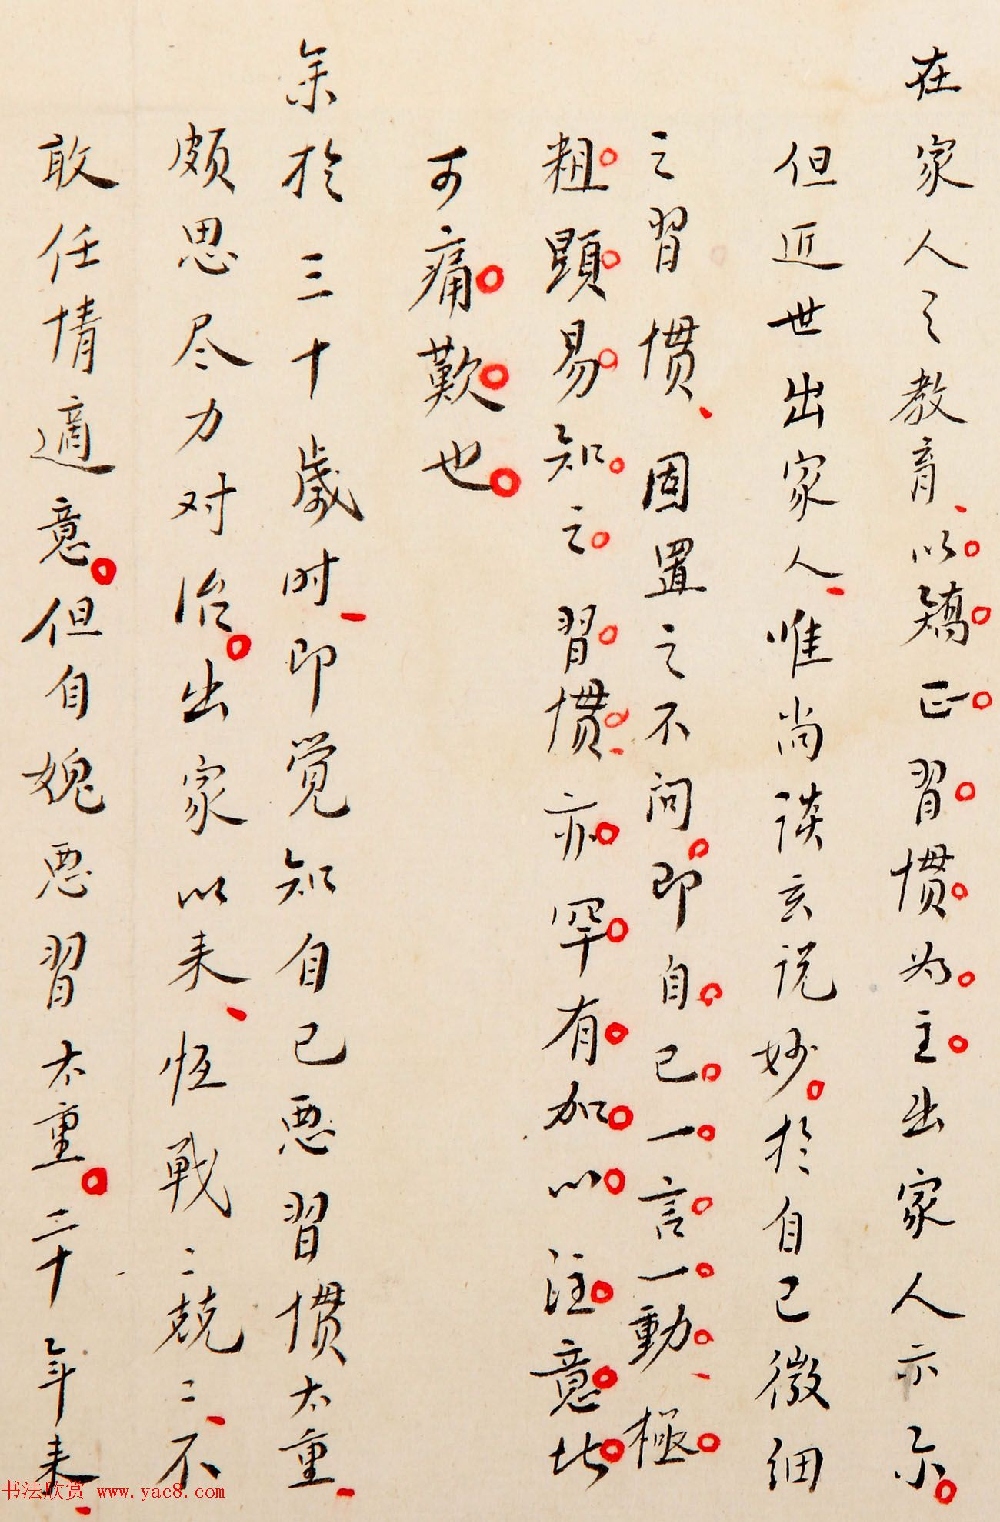 在家人之教育、以矯正習慣为主。出家人亦尔。
但近世出家人、唯尚談玄说妙。於自己微细
之習慣、固置之不问。即自己一言一動、極
粗顯易知之習慣、亦罕有加以注意。此
可痛歎也。
余於三十歲时、即觉知自己恶習慣太重、
颇思尽力对治。出家以来、恆戰〻兢〻、不
敢任情適意。但自媿恶習太重。二十年来、
书法欣赏 www.yac8.com